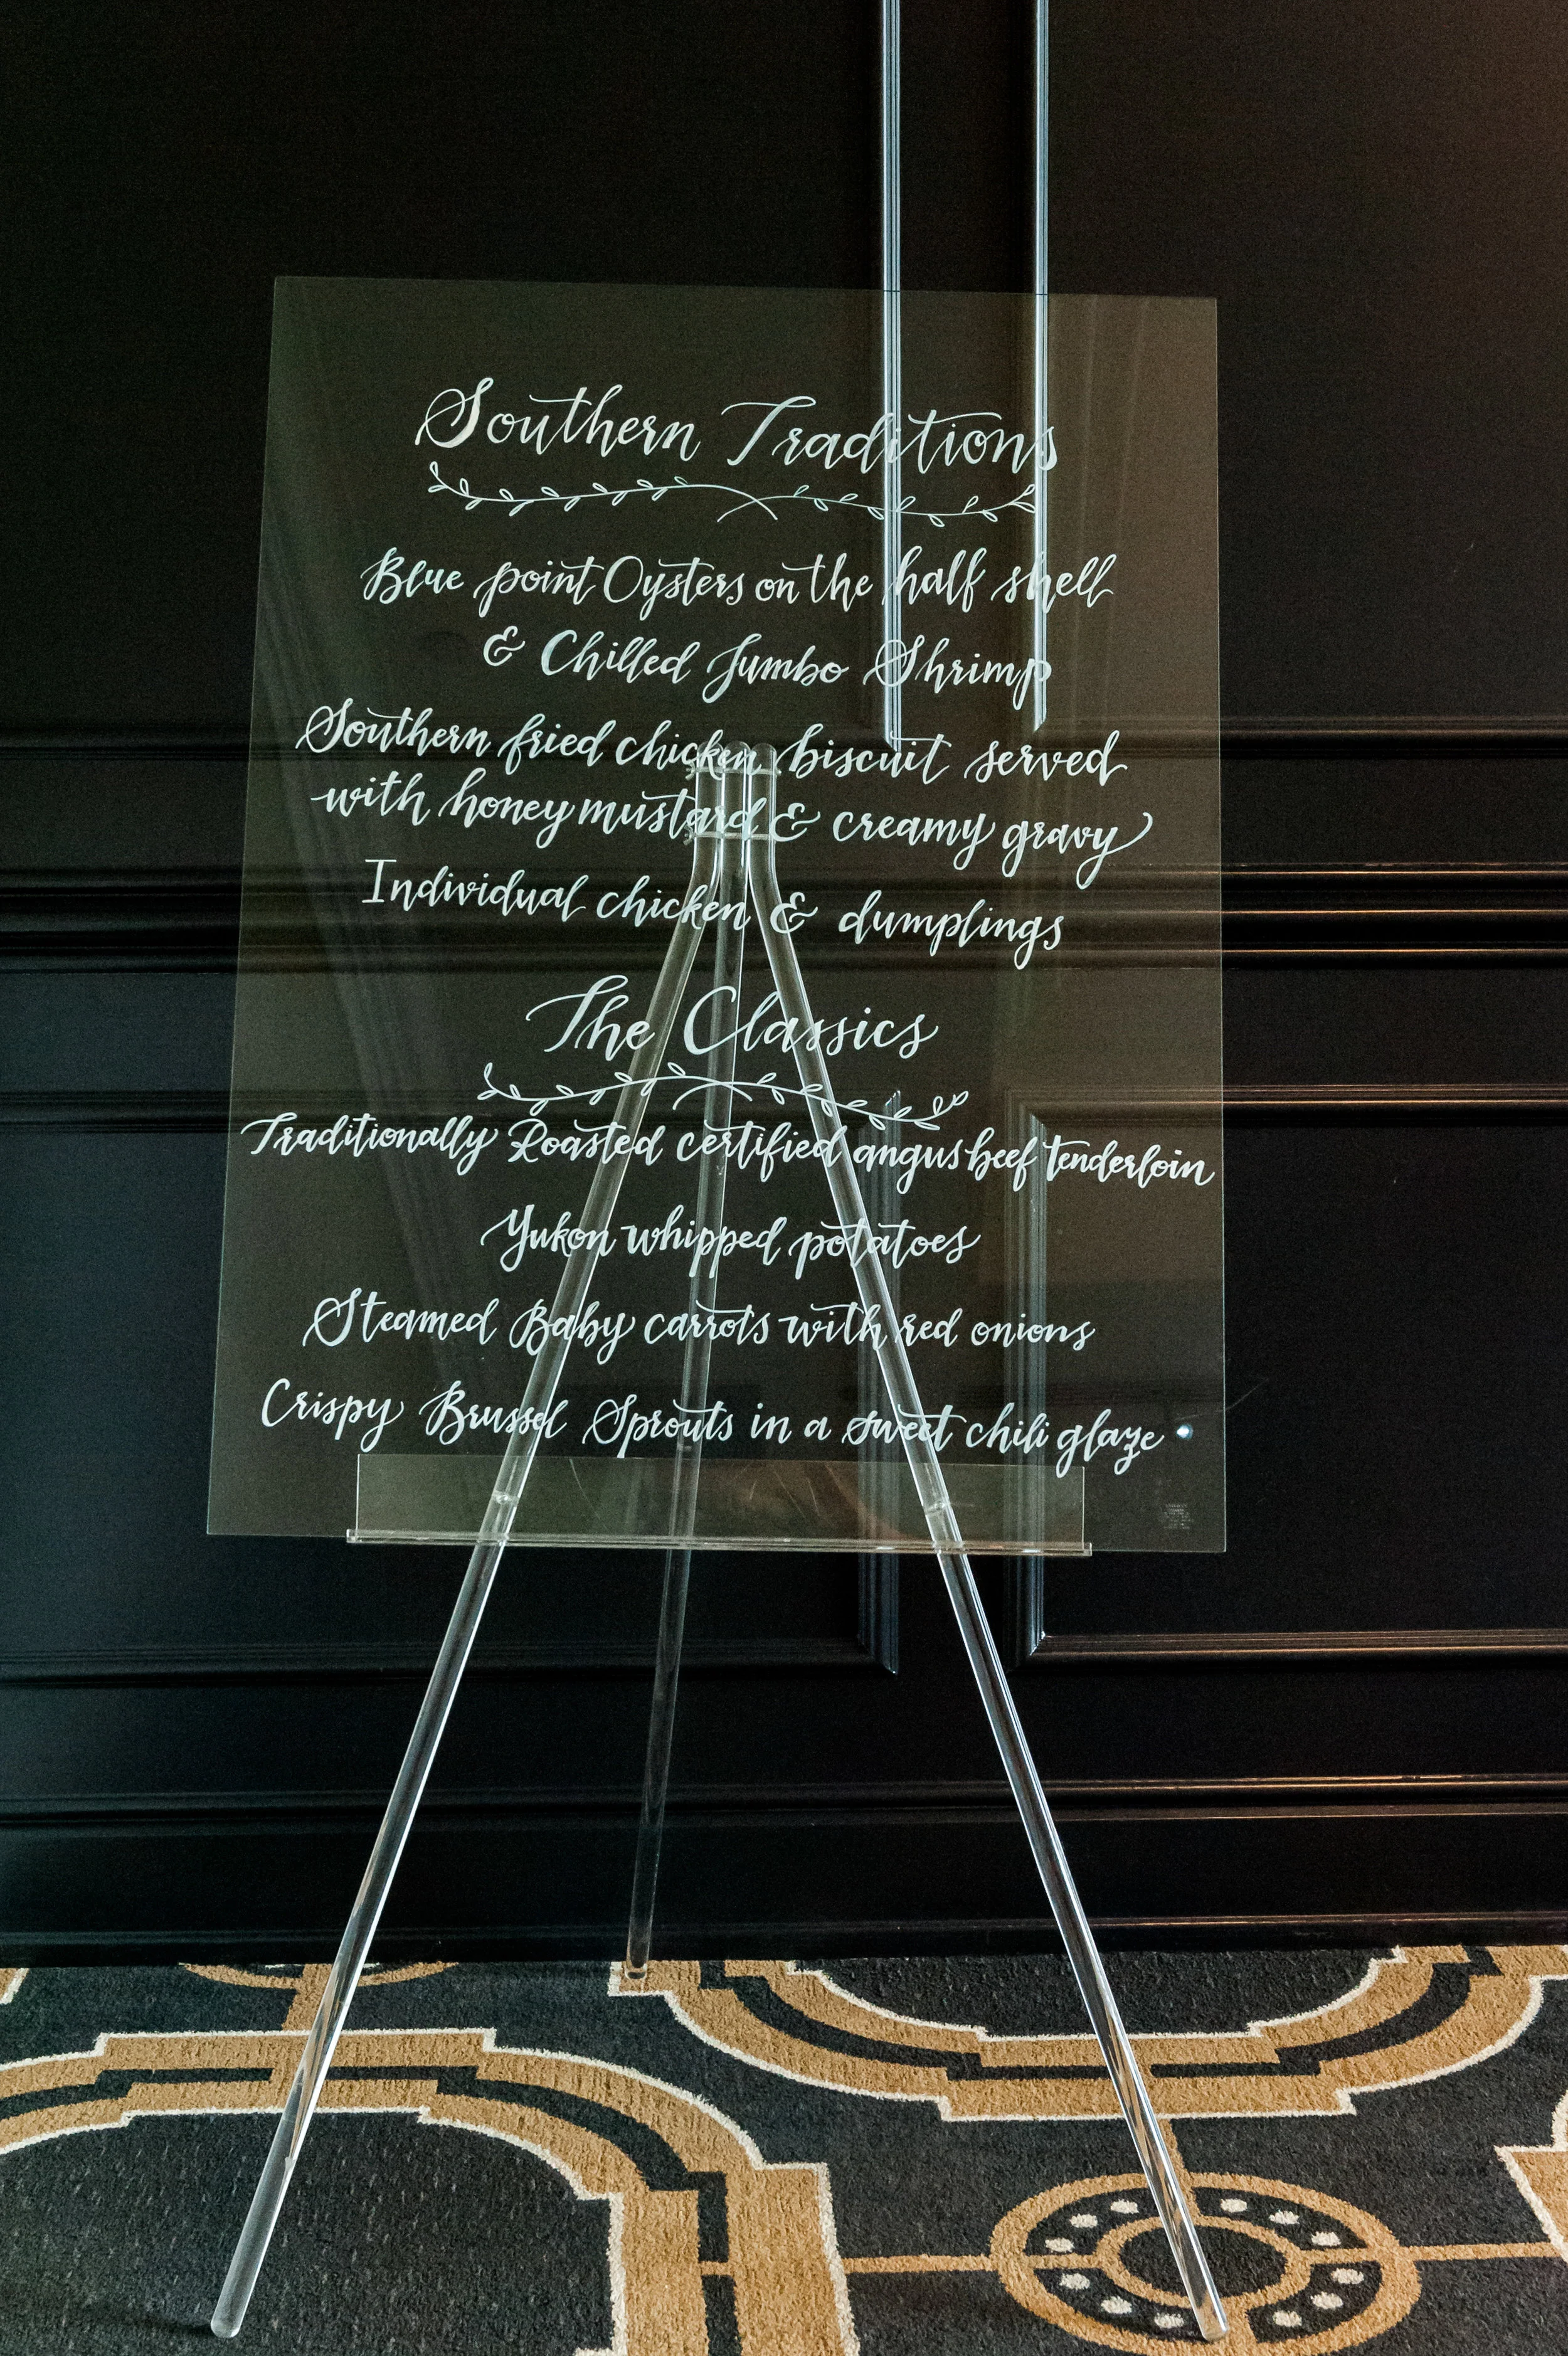 Southern Traditions
Blue point Oysters on the half shell
& Chilled Jumbo Shrimp
Southern fried chicken biscuit served
with honey mustard & creamy gravy
Individual chicken & dumplings
The Classics
Traditionally Roasted certified angus beef tenderloin
Yukon whipped potatoes
Steamed Baby carrots with red onions
Crispy Brussel Sprouts in a sweet chili glaze